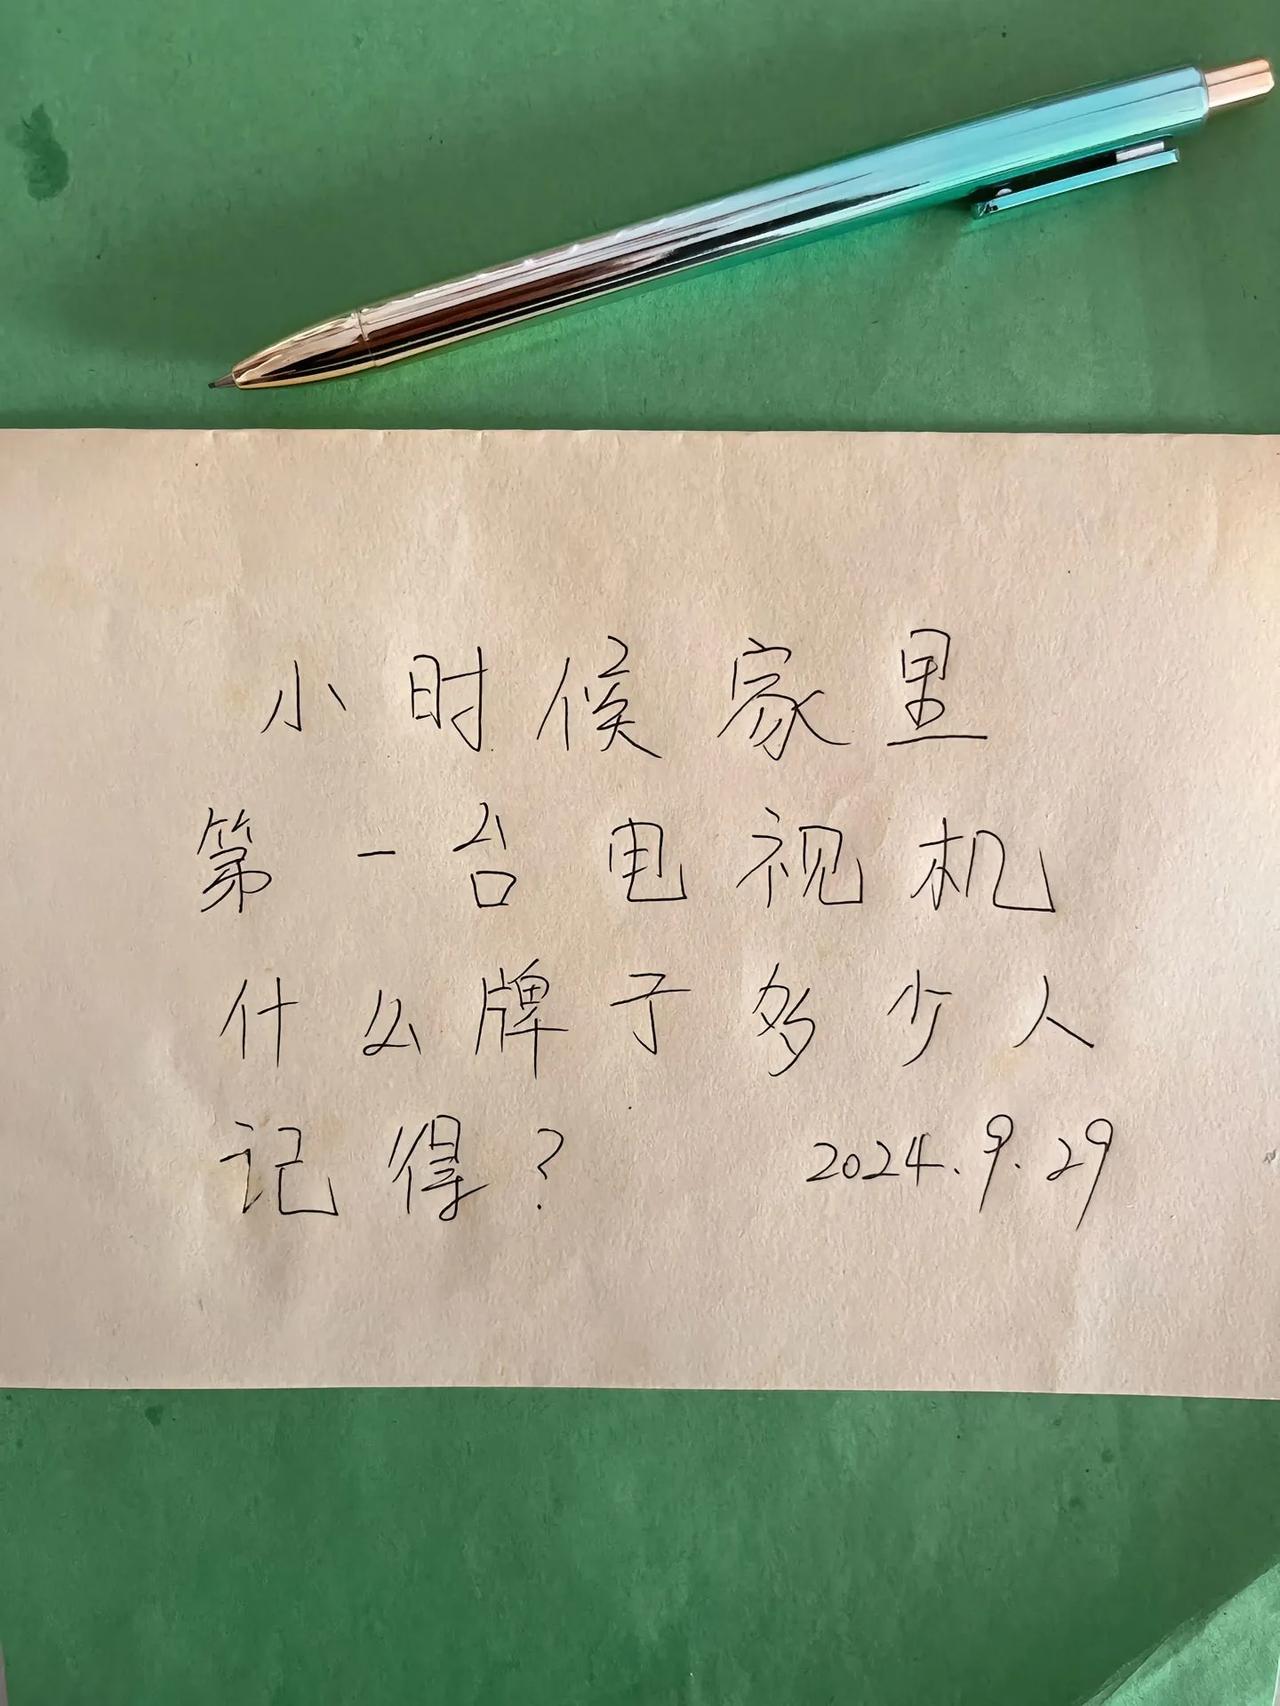 小时候家里
第一台电视机
什么牌子多少人
记得？ 2024.9.29